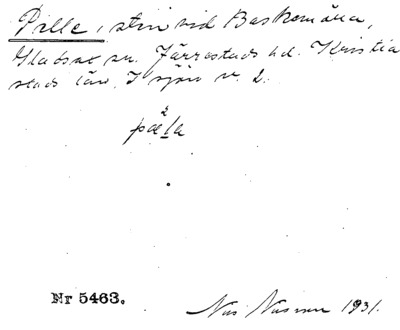 Pelle, sten vid Baskemölla,
Gladsax sn. Järrestads hd. Kristian
stads län. I sjön v. 2.
Nr 5463.
Nils Nilsson 1931.